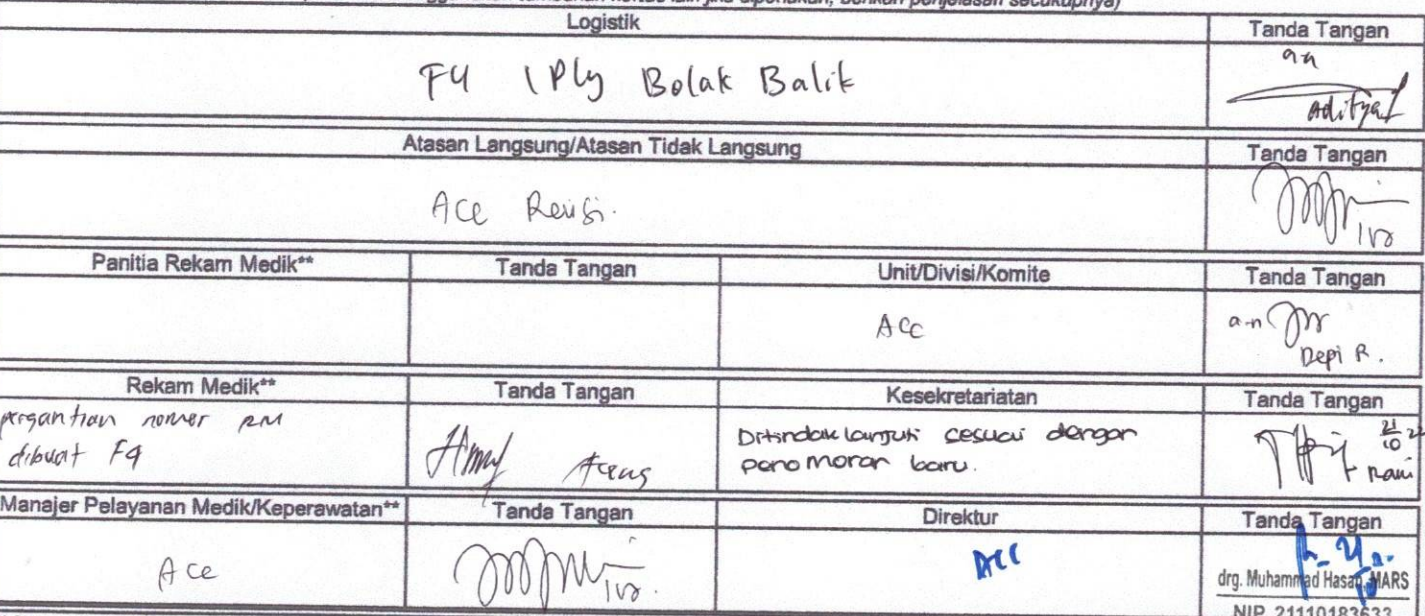 jika diperlukan, berikan penjelasan secukupnya)
Logistik
Tanda Tangan
F4 1 Ply Bolak Balik
an
Aditya
Atasan Langsung/Atasan Tidak Langsung
Tanda Tangan
Acc Revisi.
Panitia Rekam Medik**
Tanda Tangan
Unit/Divisi/Komite
Tanda Tangan
Acc
a-n
Depi R.
Rekam Medik**
Tanda Tangan
Kesekretariatan
Tanda Tangan
pergantian nomer RM
dibuat F4
Ditindaklanjuti sesuai dengan
penomoran baru.
21
10
Rani
Manajer Pelayanan Medik/Keperawatan**
Tanda Tangan
Direktur
Tanda Tangan
Acc
ACC
drg. Muhammad Hasan, MARS
NIP. 21110183633